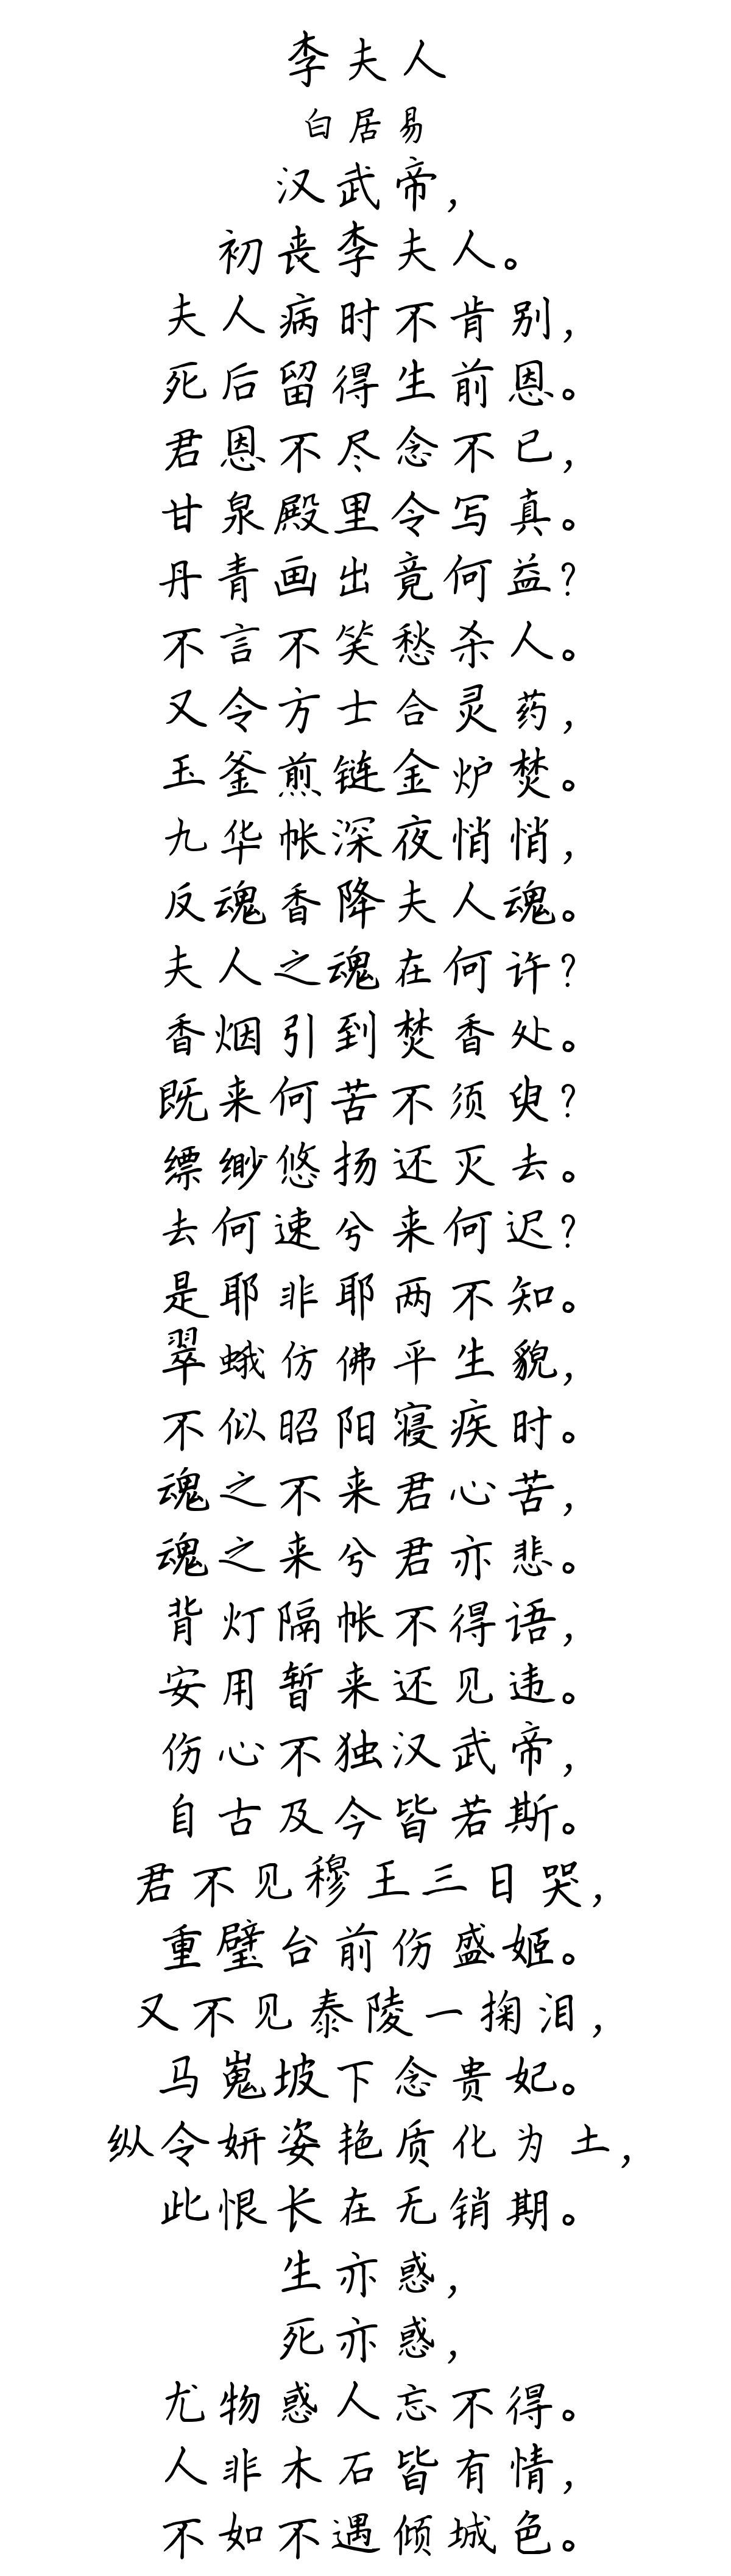 李夫人
白居易
汉武帝，
初丧李夫人。
夫人病时不肯别，
死后留得生前恩。
君恩不尽念不已，
甘泉殿里令写真。
丹青画出竟何益？
不言不笑愁杀人。
又令方士合灵药，
玉釜煎链金炉焚。
九华帐深夜悄悄，
反魂香降夫人魂。
夫人之魂在何许？
香烟引到焚香处。
既来何苦不须臾？
缥缈悠扬还灭去。
去何速兮来何迟？
是耶非耶两不知。
翠蛾仿佛平生貌，
不似昭阳寝疾时。
魂之不来君心苦，
魂之来兮君亦悲。
背灯隔帐不得语，
安用暂来还见违。
伤心不独汉武帝，
自古及今皆若斯。
君不见穆王三日哭，
重璧台前伤盛姬。
又不见泰陵一掬泪，
马嵬坡下念贵妃。
纵令妍姿艳质化为土，
此恨长在无销期。
生亦惑，
死亦惑，
尤物惑人忘不得。
人非木石皆有情，
不如不遇倾城色。